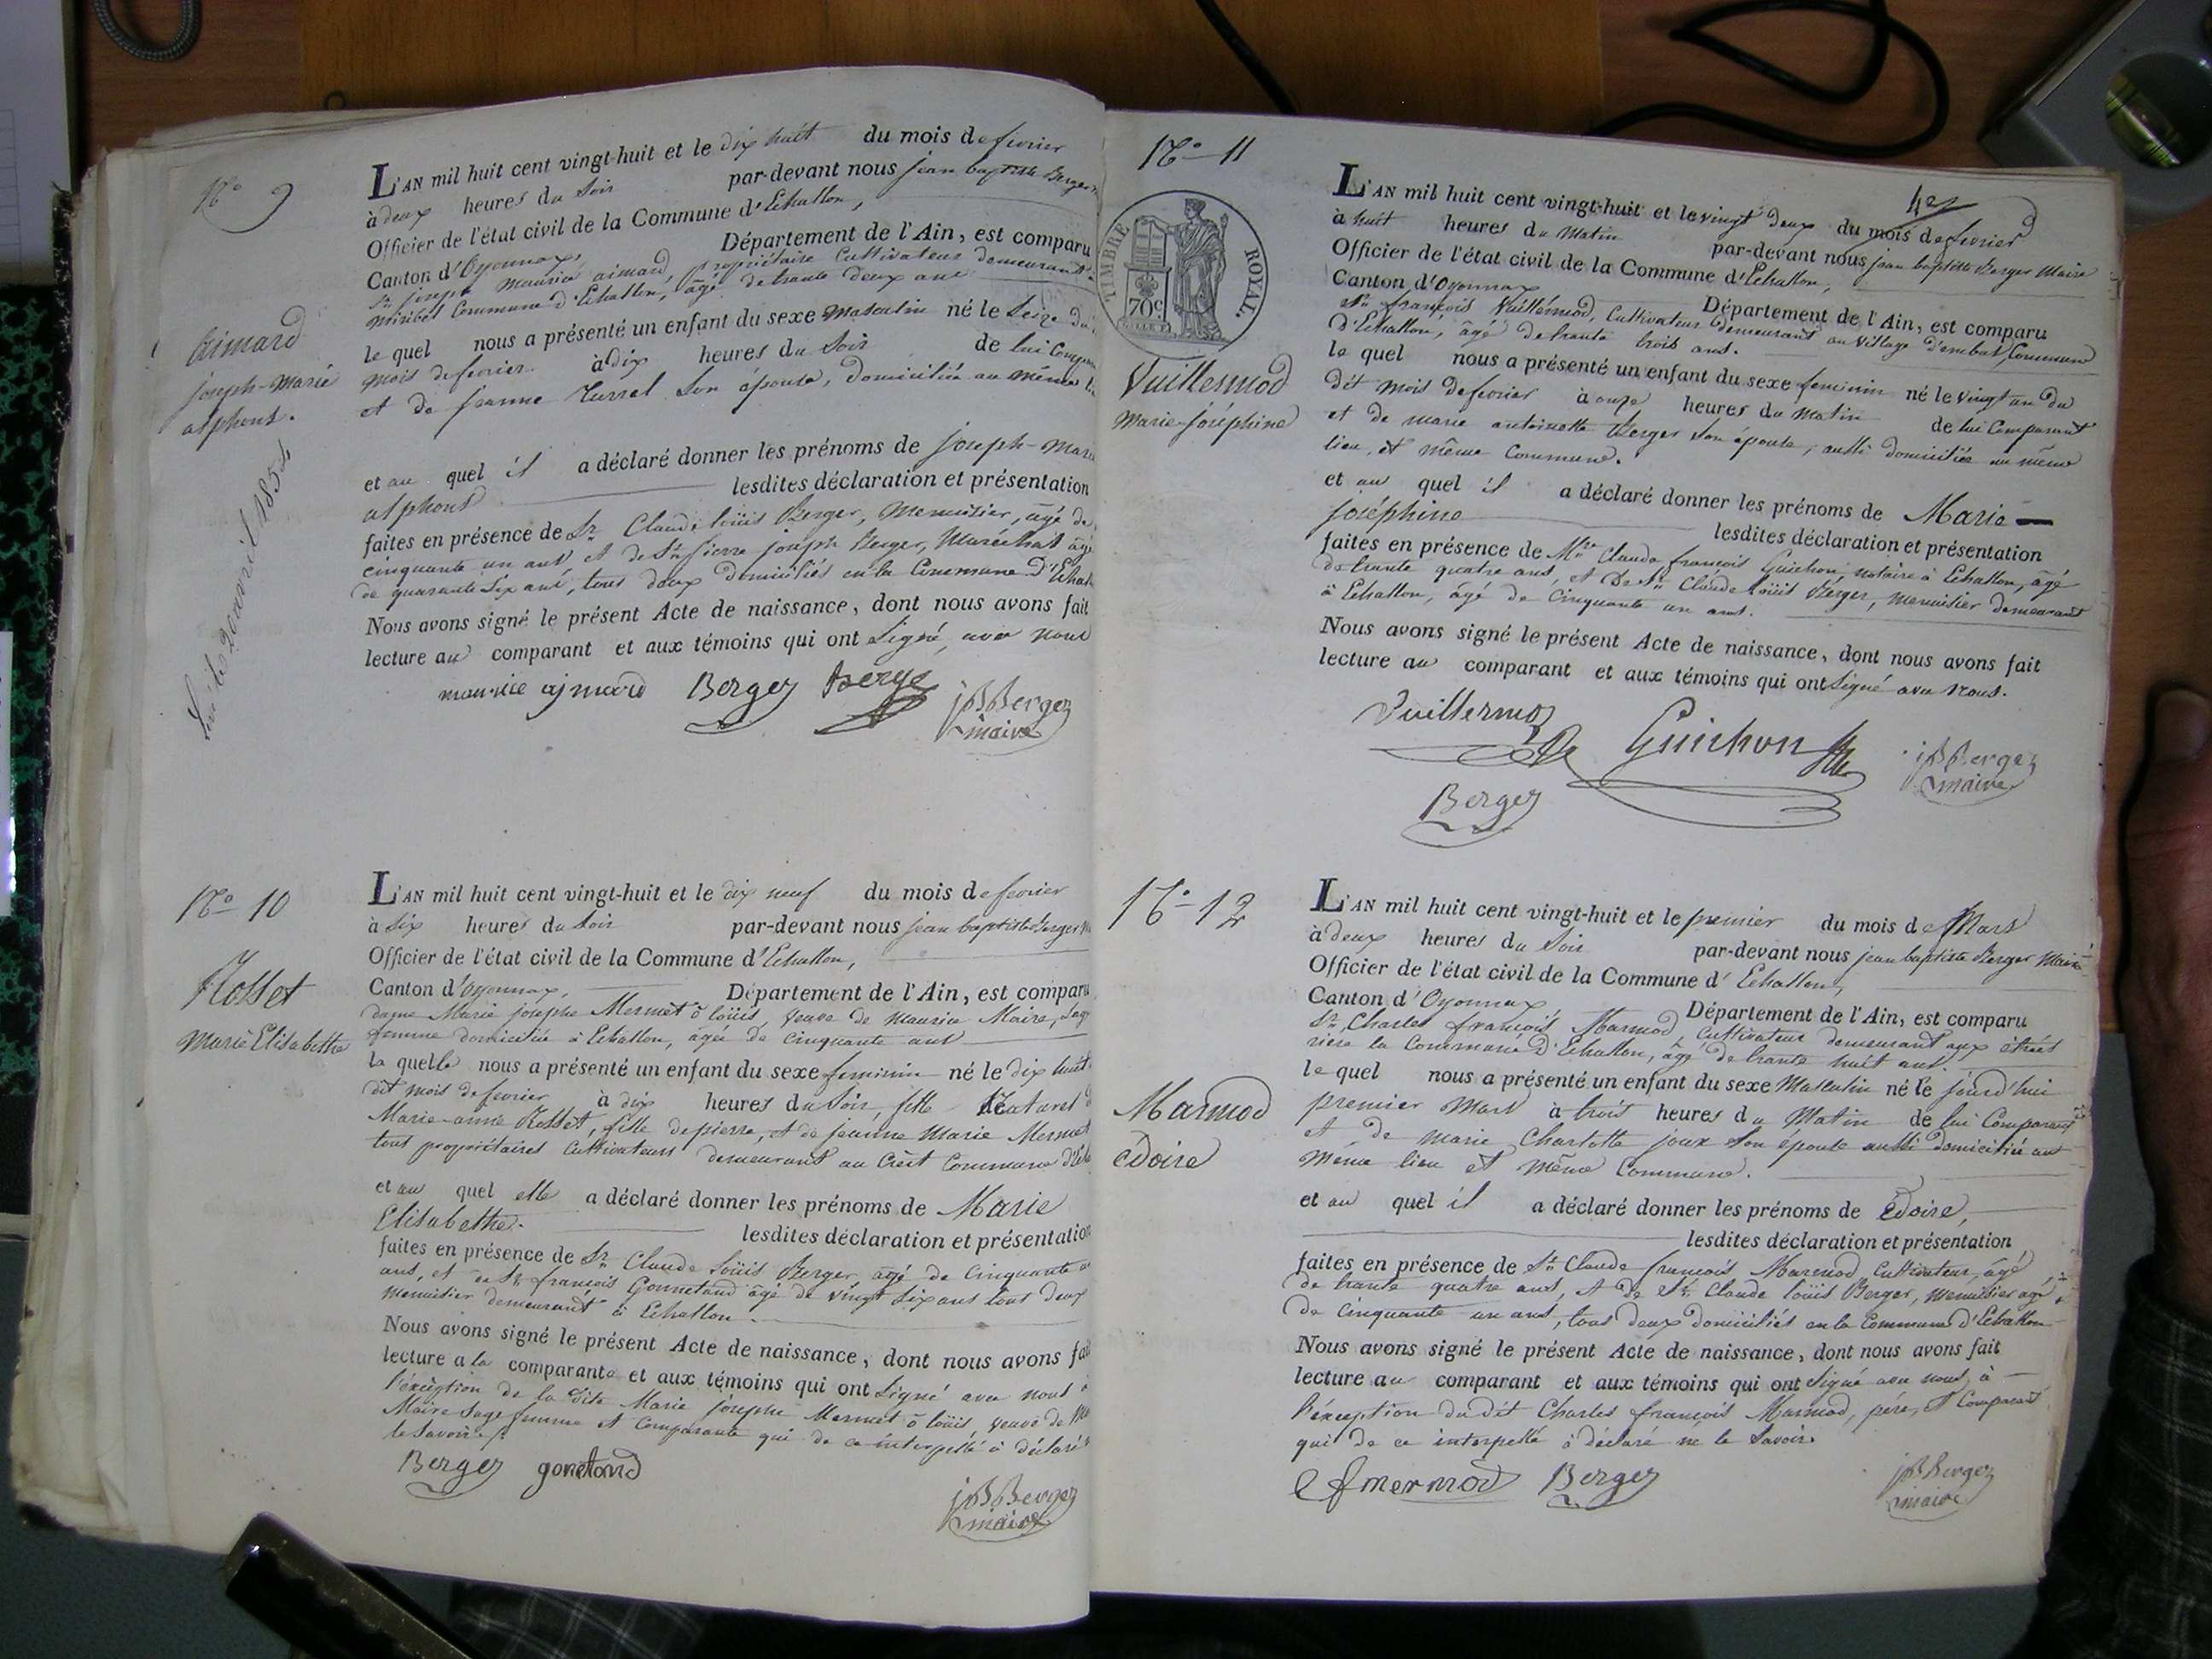 N.o 9
Aimard
joseph-marie
alphons.
L'AN mil huit cent vingt-huit et le dix huit du mois de fevrier
à deux heures du soir par-devant nous jean baptiste Berger
Officier de l'état civil de la Commune d'Echallon,
Canton d'Oyonnax, Département de l'Ain, est comparu
Sr. joseph maurice aimard, propriétaire Cultivateur demeurant à
miribel Commune d'Echallon, âgé de trante deux ans
le quel nous a présenté un enfant du sexe masculin né le seize du
mois de fevrier à dix heures du soir de lui Compa
et de jeanne Turrel son épouse, domiciliée au même
et au quel il a déclaré donner les prénoms de joseph-marie
alphons lesdites déclaration et présentation
faites en présence de Sr. Claude loüis Berger, menuisier, âgé de
cinquante un ans et de Sr. pierre joseph Berger, Maréchal âgé
de quarante six ans, tous deux domiciliés en la Commune d'Echal
Nous avons signé le présent Acte de naissance, dont nous avons fait
lecture au comparant et aux témoins qui ont signé, avec nous
maurice ajmard Berger Berge
jBBerger
maire
N.o 10
Rosset
Marie Elisabethe
L'AN mil huit cent vingt-huit et le dix neuf du mois de fevrier
à six heures du soir par-devant nous jean baptiste Berger
Officier de l'état civil de la Commune d'Echallon,
Canton d'Oyonnax, Département de l'Ain, est comparu
dame Marie josephe Mermet ô loüis, veuve de maurice Maire, sage
femme domiciliée à Echallon, âgée de cinquante ans
la quelle nous a présenté un enfant du sexe feminin né le dix huit
dit mois de fevrier à dix heures du soir, fille Naturel
Marie-anne Rosset, fille de pierre, et de jeanne Marie Mermet
tous propriétaires Cultivateurs demeurant au Crêt Commune d'Echa
et au quel elle a déclaré donner les prénoms de Marie
Elisabethe. lesdites déclaration et présentation
faites en présence de Sr. Claude loüis Berger âgé de Cinquante un
ans, et de Sr. françois Gonnetand âgé de vingt six ans tout deux
menuisier demeurant à Echallon.
Nous avons signé le présent Acte de naissance, dont nous avons fait
lecture a la comparante et aux témoins qui ont signé avec nous à
l'éxception de la dite Marie josephe Mermet ô loüis, veuve de
Maire sage femme et Comparante qui de ce interpellé à déclaré
le savoir.
Berger gonetand
jBBerger
maire
N.o 11
42
TIMBRE ROYAL.
70c
Vuillermod
Marie-joséphine
L'AN mil huit cent vingt-huit et le vingt deux du mois de fevrier
à huit heures du matin par-devant nous jean baptiste Berger Maire
Officier de l'état civil de la Commune d'Echallon,
Canton d'Oyonnax Département de l'Ain, est comparu
Sr. françois Vuillermod, Cultivateur demeurant au village d'embut, Commune
d'Echallon, âgé de trante trois ans.
le quel nous a présenté un enfant du sexe feminin né le vingt un du
dit mois de fevrier à onze heures du matin de lui Comparant
et de marie antoinette Berger son épouse, aussi domiciliée au même
lieu, et même Commune.
et au quel il a déclaré donner les prénoms de Marie
joséphine lesdites déclaration et présentation
faites en présence de Mtre Claude françois Guichon, notaire à Echallon, âgé
de trante quatre ans, et De Sr. Claude loüis Berger, menuisier demeurant
à Echallon, âgé de Cinquante un ans.
Nous avons signé le présent Acte de naissance, dont nous avons fait
lecture au comparant et aux témoins qui ont signé avec nous.
Vuillermoz Guichon
jBBerger
maire
Berger
N.o 12
Marmod
édoire
L'AN mil huit cent vingt-huit et le premier du mois de Mars
à deux heures du soir par-devant nous jean baptiste Berger Maire
Officier de l'état civil de la Commune d'Echallon,
Canton d'Oyonnax, Département de l'Ain, est comparu
Sr. Charles françois Marmod Cultivateur demeurant aux
riere la Commune d'Echallon, âgé de trante huit ans.
le quel nous a présenté un enfant du sexe Masculin né le jourd'hui
premier Mars à trois heures du Matin de lui Comparant
et de marie Charlotte joux son épouse aussi domiciliée au
même lieu et même Commune.
et au quel il a déclaré donner les prénoms de Edoire,
lesdites déclaration et présentation
faites en présence de Sr. Claude françois Marmod Cultivateur, âgé
de trante quatre ans, et de Sr. Claude loüis Berger, menuisier âgé
de cinquante un ans, tous deux domiciliés en la Commune d'Echallon
Nous avons signé le présent Acte de naissance, dont nous avons fait
lecture au comparant et aux témoins qui ont signé avec nous, à
l'éxception du dit Charles françois Marmod, père, et Comparant
qui de ce interpellé à déclaré ne le savoir.
Cfmermod Berger
jBBerger
maire